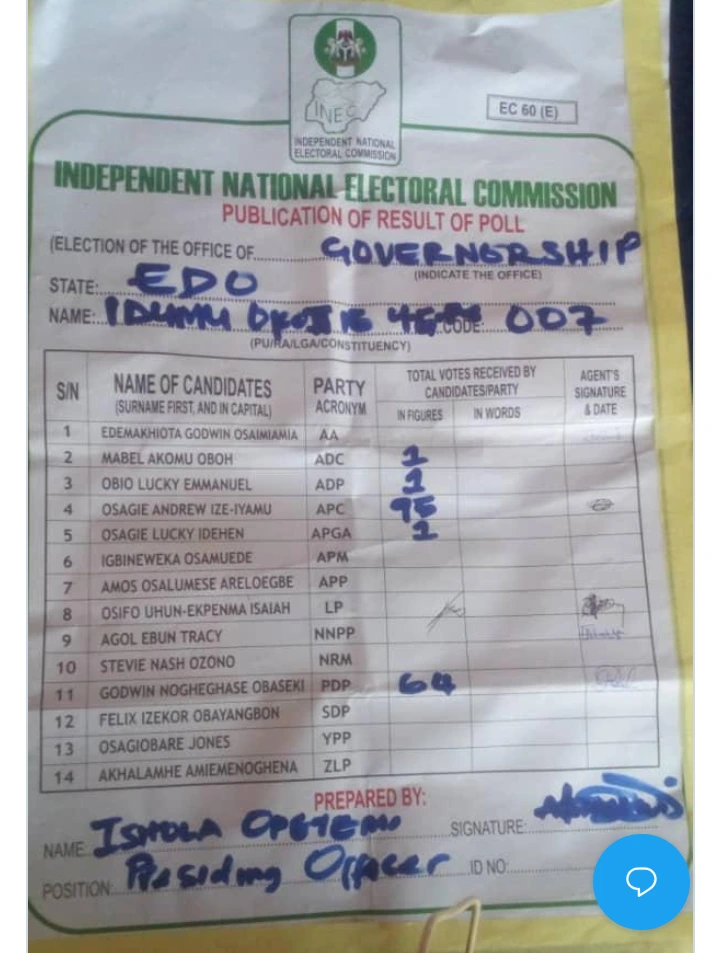 INEC
INDEPENDENT NATIONAL
ELECTORAL COMMISSION
EC 60 (E)
INDEPENDENT NATIONAL ELECTORAL COMMISSION
PUBLICATION OF RESULT OF POLL
(ELECTION OF THE OFFICE OF GOVERNORSHIP
(INDICATE THE OFFICE)
STATE: EDO
NAME: IDUMU CODE: 007
(PU/RA/LGA/CONSTITUENCY)
S/N NAME OF CANDIDATES (SURNAME FIRST, AND IN CAPITAL) PARTY ACRONYM TOTAL VOTES RECEIVED BY CANDIDATES/PARTY IN FIGURES IN WORDS AGENT'S SIGNATURE & DATE
1 EDEMAKHIOTA GODWIN OSAIMIAMIA AA
2 MABEL AKOMU OBOH ADC 1
3 OBIO LUCKY EMMANUEL ADP 1
4 OSAGIE ANDREW IZE-IYAMU APC 95
5 OSAGIE LUCKY IDEHEN APGA 1
6 IGBINEWEKA OSAMUEDE APM
7 AMOS OSALUMESE ARELOEGBE APP
8 OSIFO UHUN-EKPENMA ISAIAH LP
9 AGOL EBUN TRACY NNPP
10 STEVIE NASH OZONO NRM
11 GODWIN NOGHEGHASE OBASEKI PDP 64
12 FELIX IZEKOR OBAYANGBON SDP
13 OSAGIOBARE JONES YPP
14 AKHALAMHE AMIEMENOGHENA ZLP
PREPARED BY:
NAME: ISHOLA SIGNATURE:
POSITION: Presiding Officer ID NO: